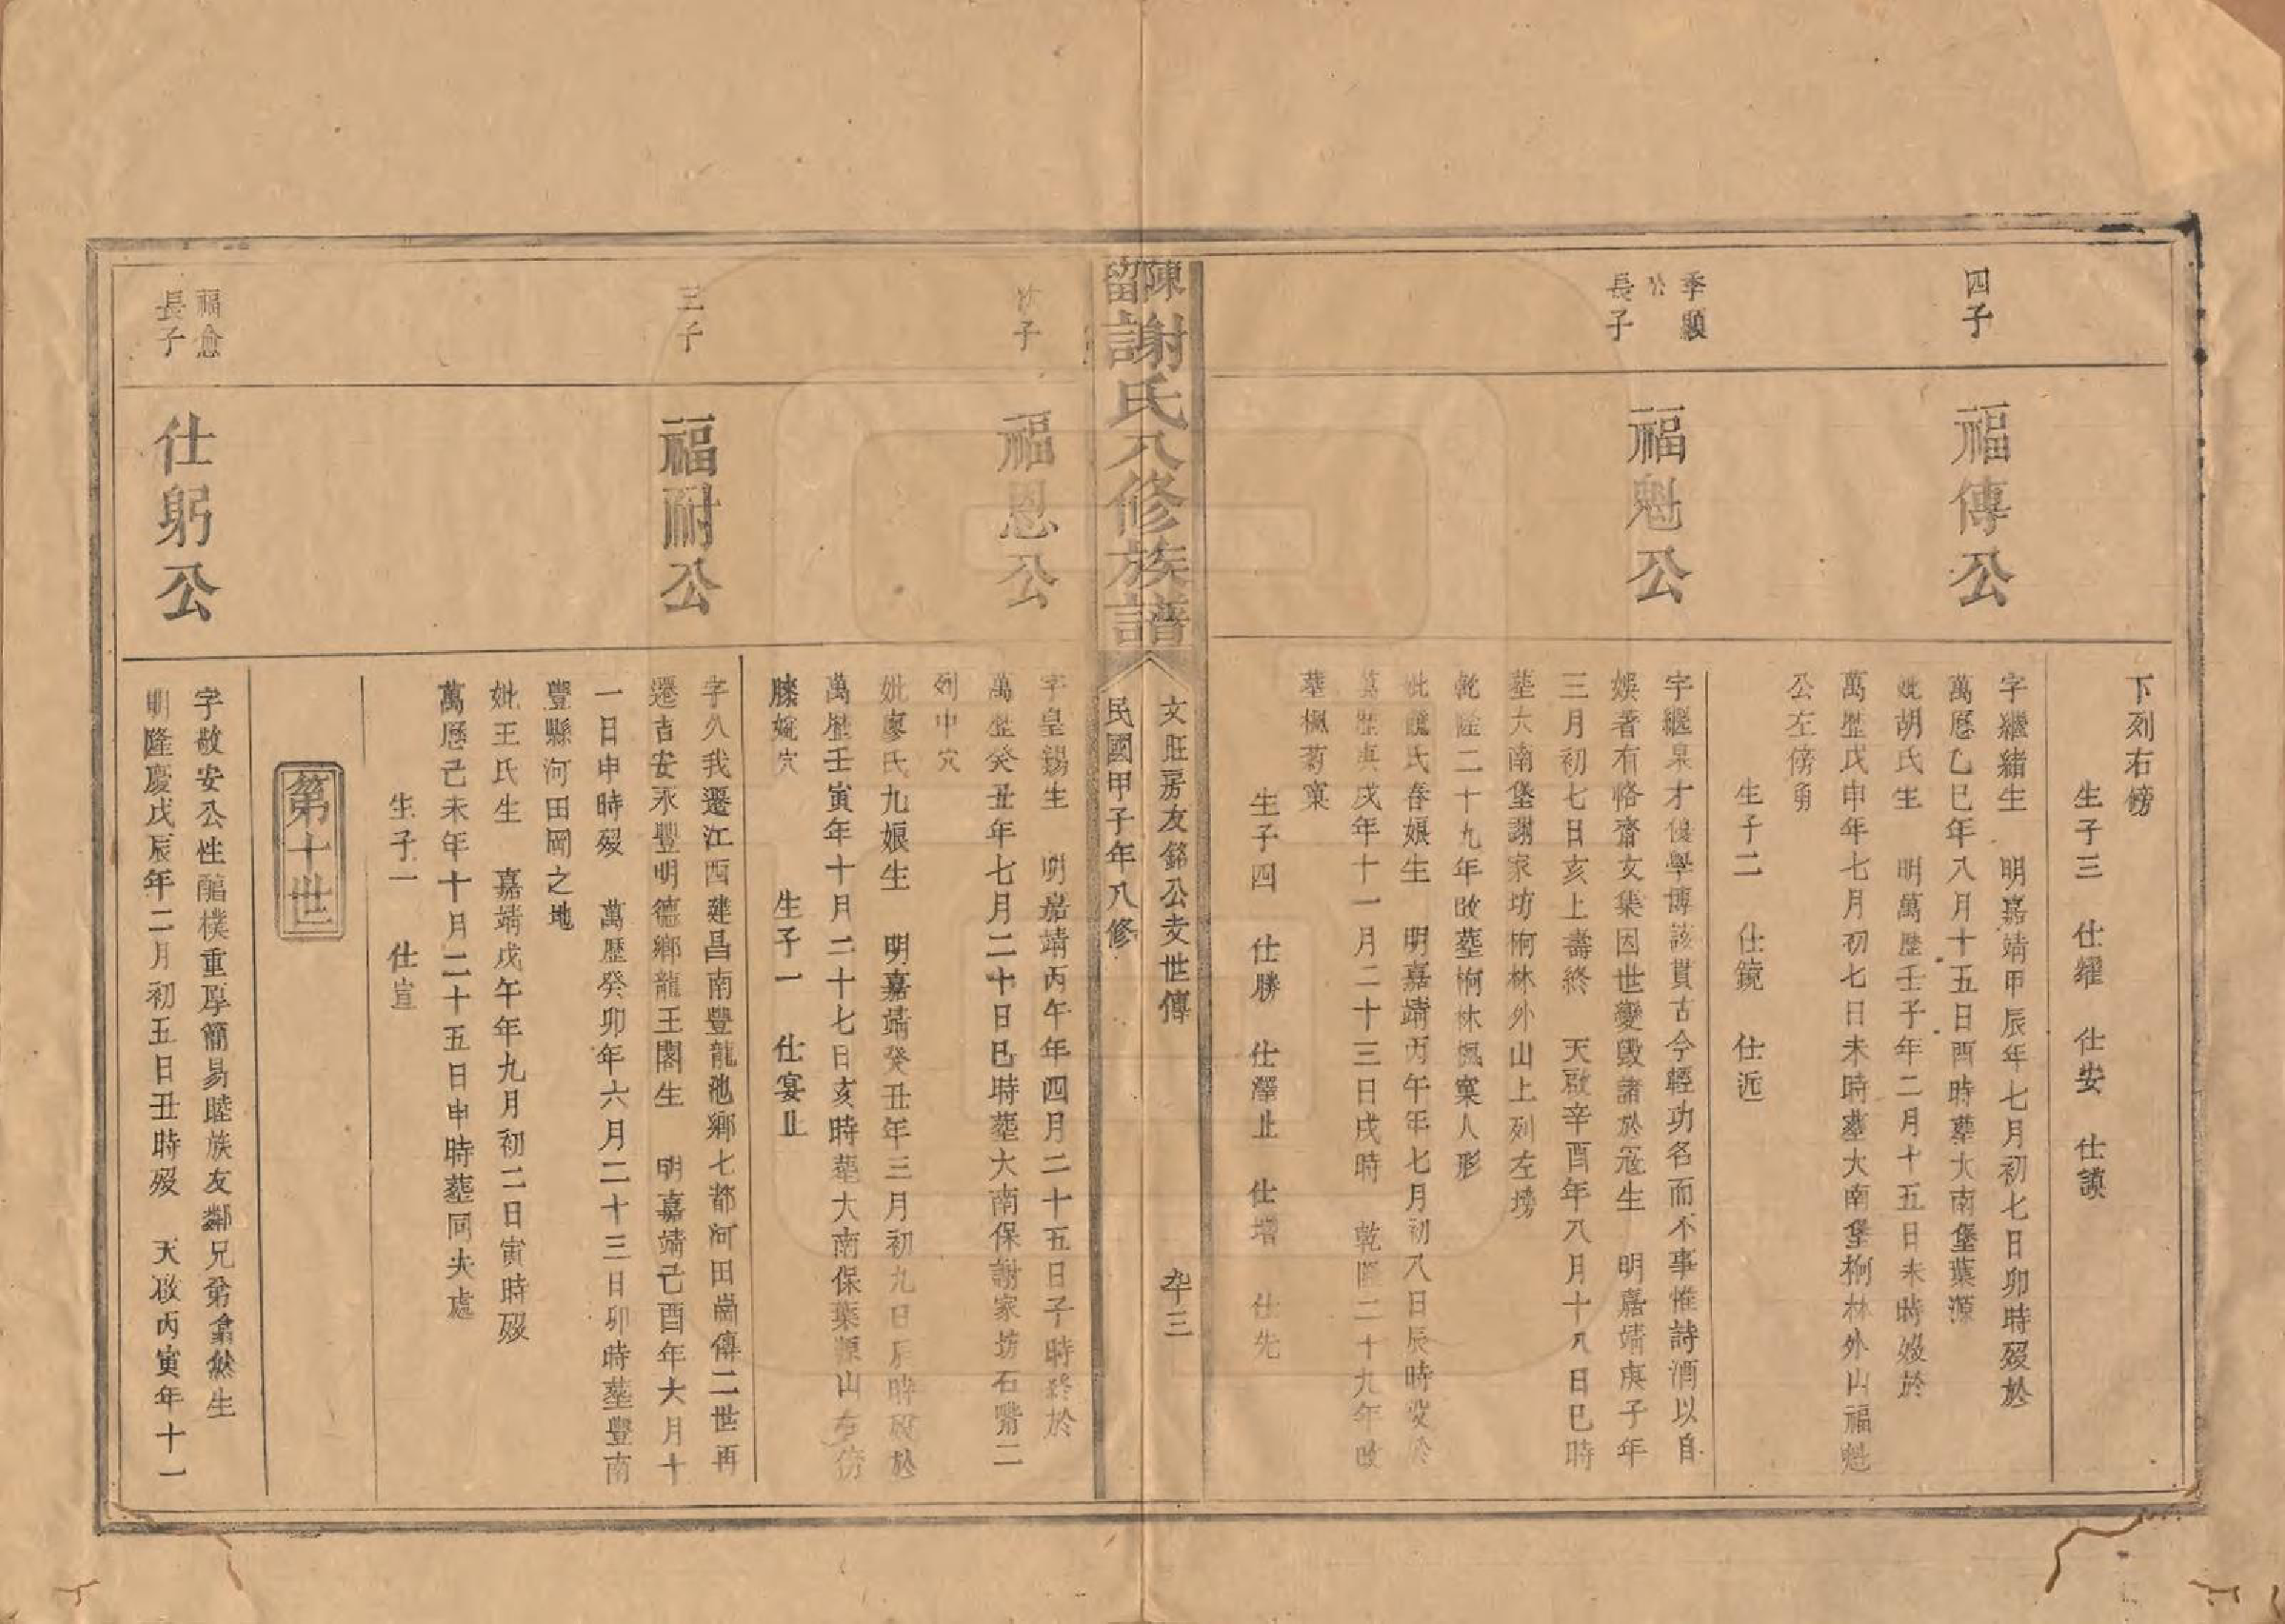 下列右傍
生子三 仕縉 仕安 仕謨
四子
福傳公
字繼緒生 明嘉靖甲辰年七月初七日卯時歿於
萬曆乙巳年八月十五日酉時葬大南堡葉源
妣胡氏生 明萬歷壬子年二月十五日未時歿於
萬歷戊申年七月初七日未時葬大南堡桐林外山福魁
公左傍肩
生子二 仕鏡 仕近
季顯公
長子
福魁公
字繼泉才俊學博該貫古今輕功名而不事惟詩酒以自
娛著有恪齋文集因世變毀諸於冦生 明嘉靖庚子年
三月初七日亥上壽終 天啟辛酉年八月十八日巳時
葬大南堡謝家坊桐林外山上列左塝
乾隆二十九年改葬桐林楓窠人形
妣饒氏春娘生 明嘉靖丙午年七月初八日辰時歿於
萬歷庚戌年十一月二十三日戌時 乾隆二十九年改
葬楓萏窠
生子四 仕勝 仕澤止 仕增 仕先
陳留謝氏八修族譜
文旺房友銘公支世傳
卆三
民國甲子年八修
次子
福恩公
字皇錫生 明嘉靖丙午年四月二十五日子時終於
萬歷癸丑年七月二十日巳時葬大南保謝家坊石嘴二
列中穴
妣廖氏九娘生 明嘉靖癸丑年三月初九日辰時歿於
萬歷壬寅年十月二十七日亥時葬大南保葉源山左傍
塍塝穴 生子一 仕宴止
三子
福耐公
字久我遷江西建昌南豐龍池鄉七都河田崗傳二世再
遷吉安永豐明德鄉龍王閣生 明嘉靖己酉年六月十
一日申時歿 萬歷癸卯年六月二十三日卯時葬豐南
豐縣河田岡之地
妣王氏生 嘉靖戊午年九月初二日寅時歿
萬曆己未年十月二十五日申時葬同夫處
生子一 仕宣
第十世
福愈
長子
仕躬公
字敬安公性醞樸重厚簡易睦族友鄰兄弟翕然生
明隆慶戊辰年二月初五日丑時歿 天啟丙寅年十一